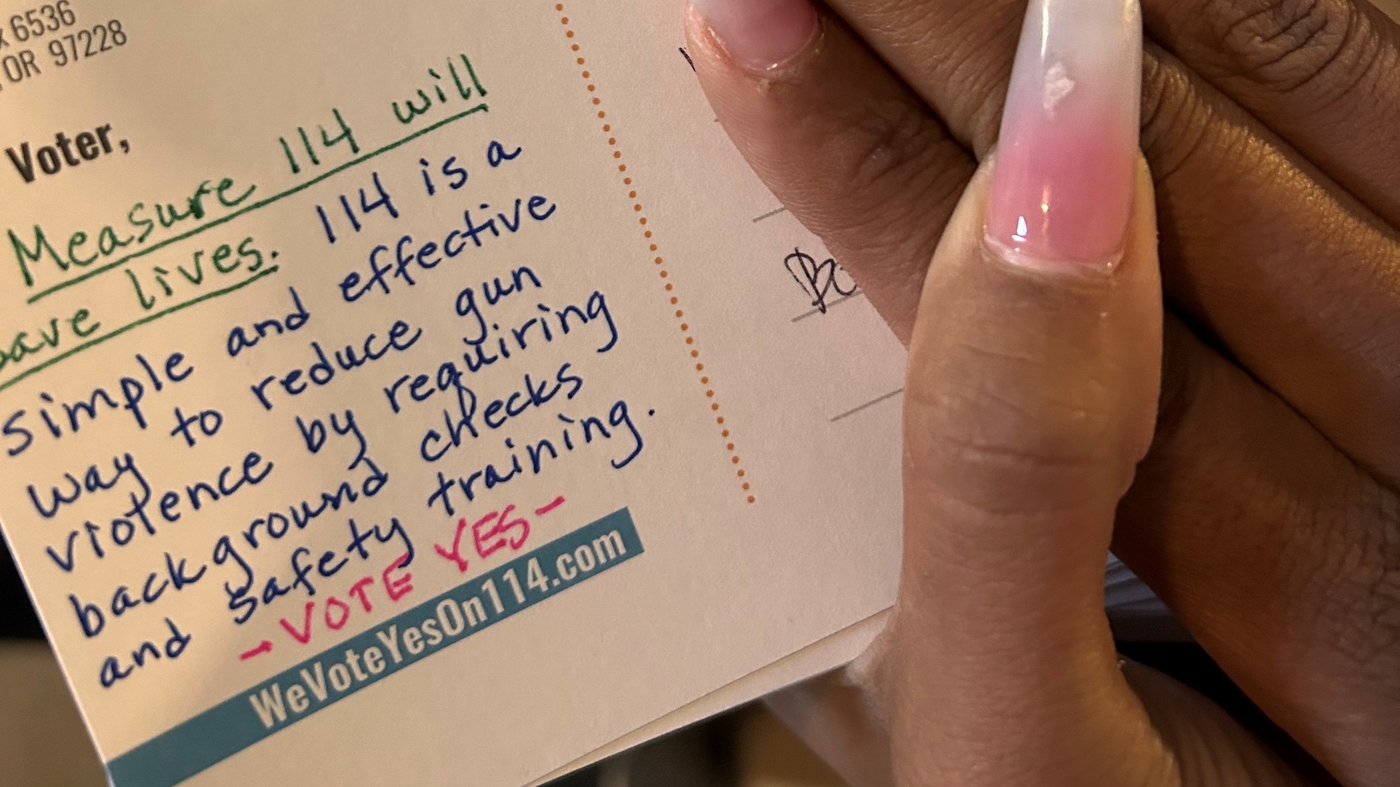 6536
OR 97228
Voter,
Measure 114 will
save lives. 114 is a
simple and effective
way to reduce gun
violence by requiring
background checks
and safety training.
- VOTE YES -
WeVoteYesOn114.com
Bo